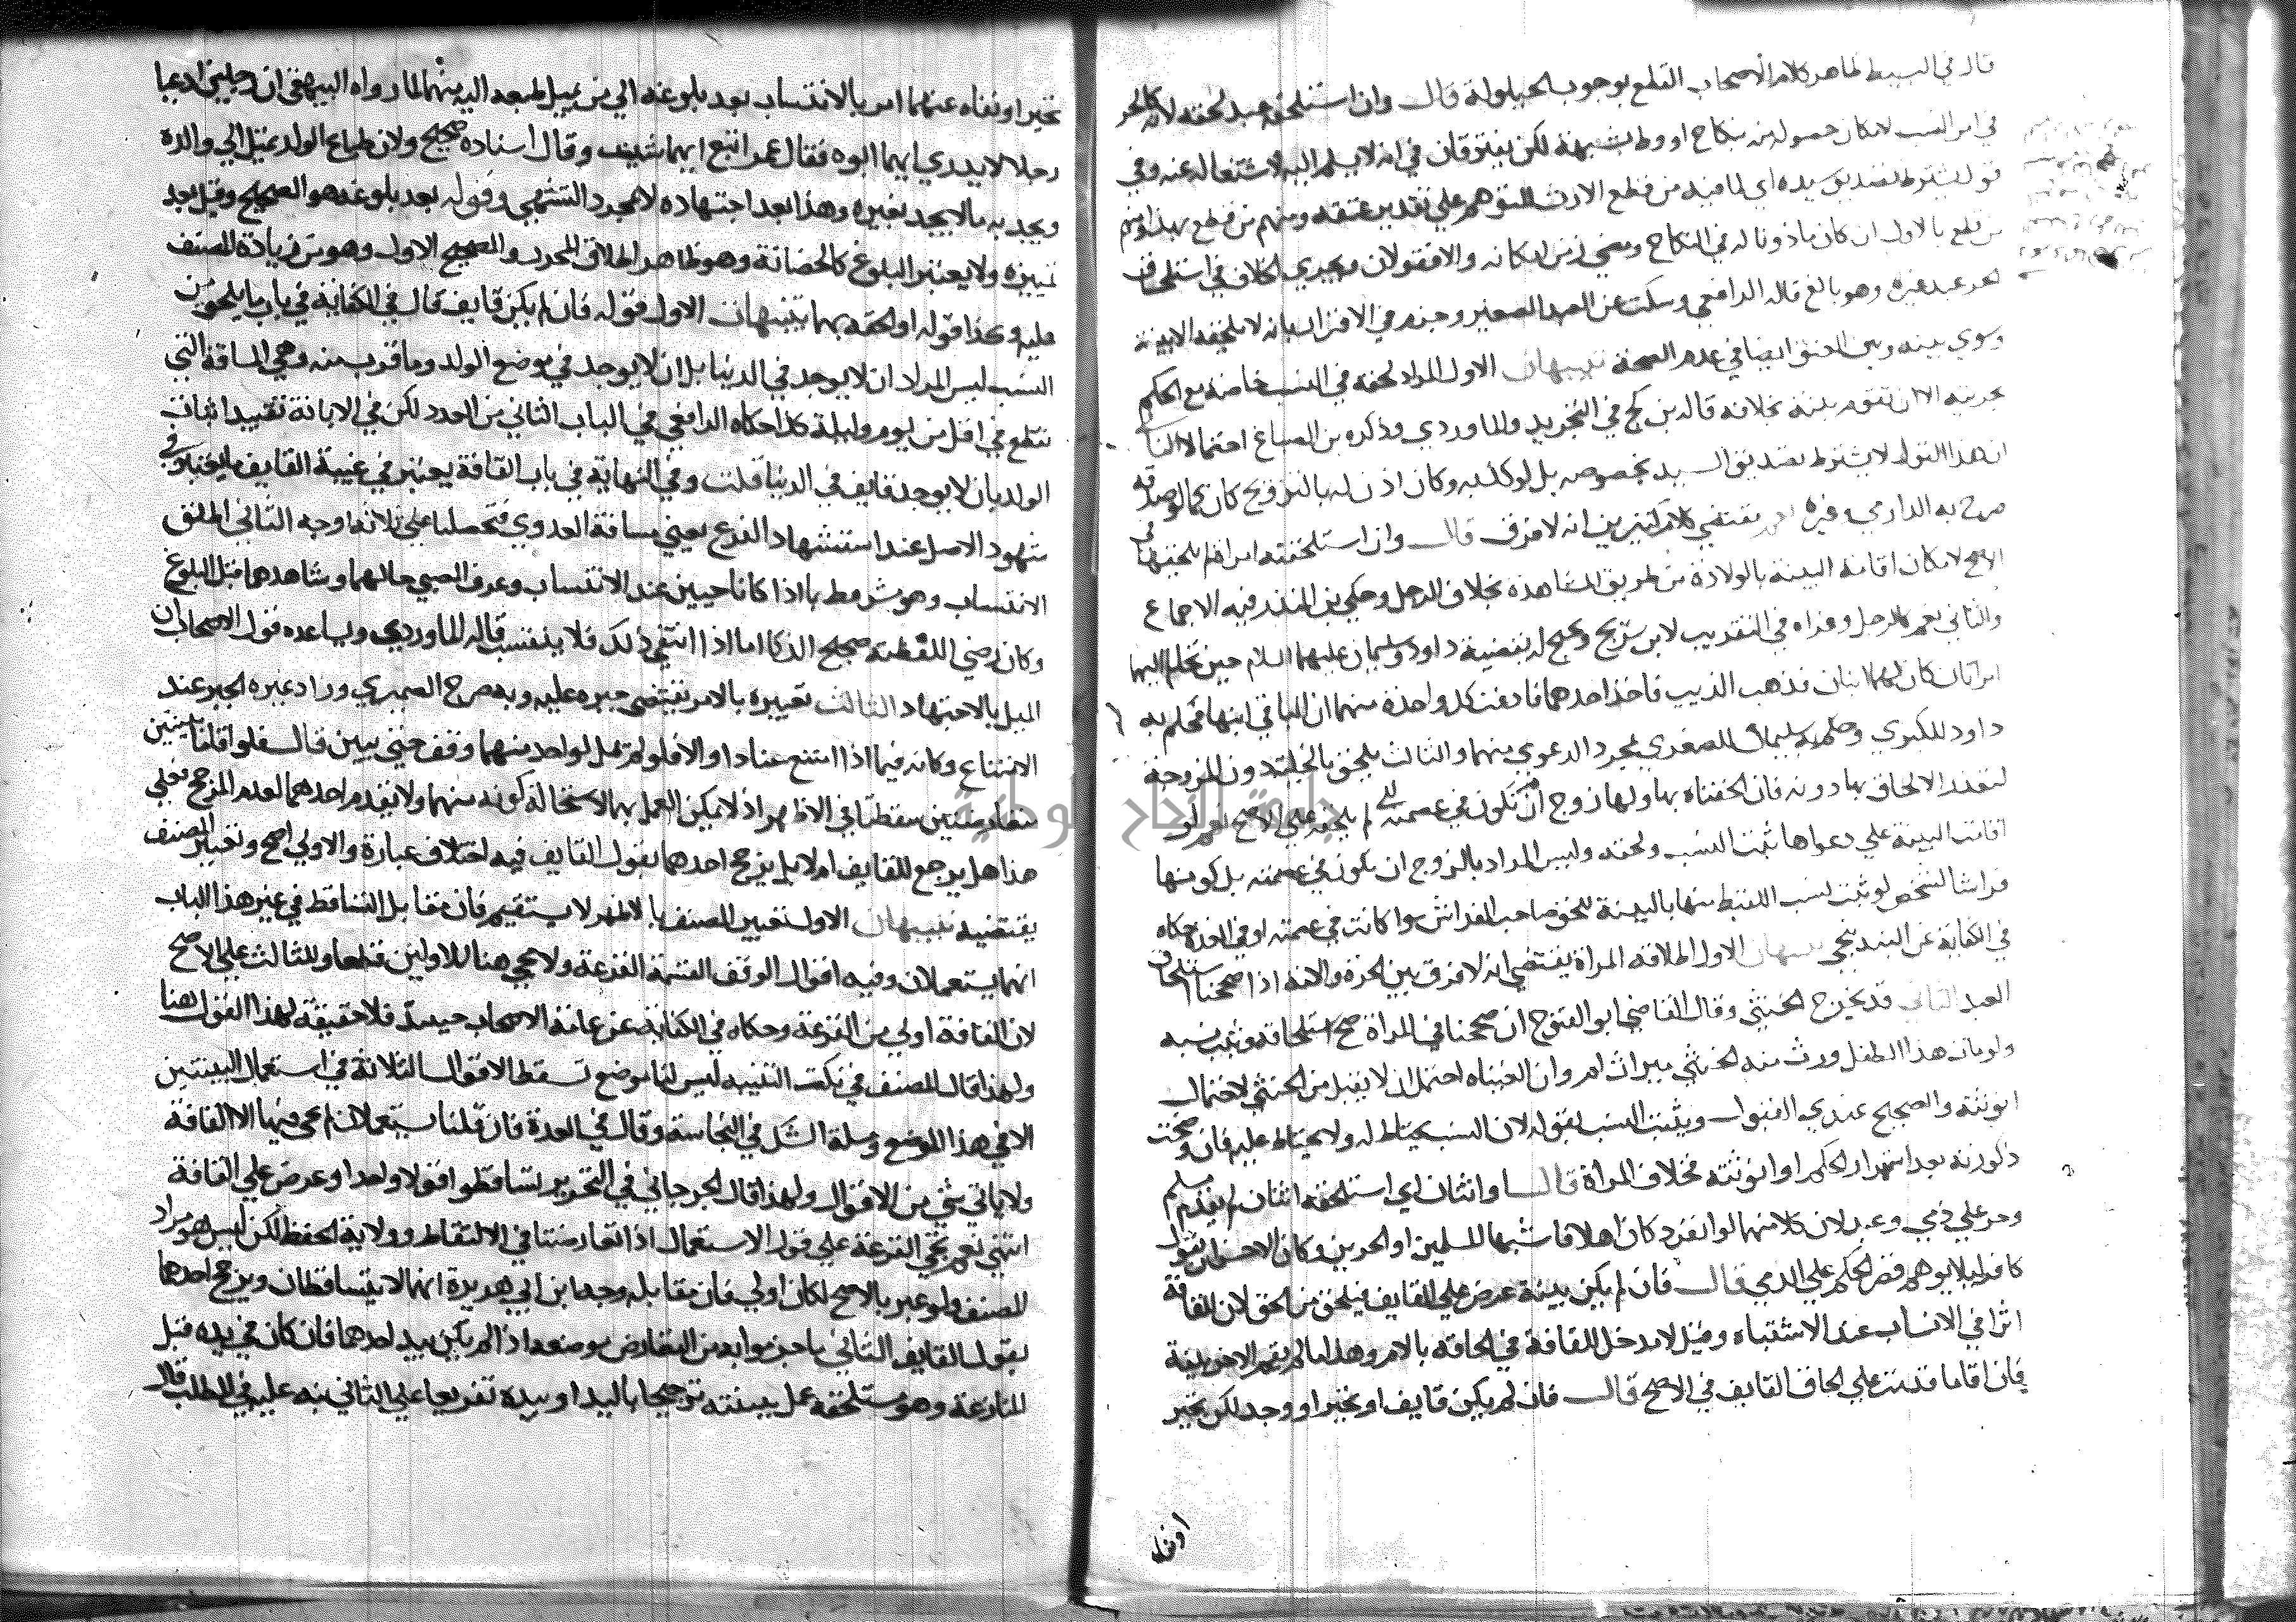 قال في البسيط ظاهر كلام الأصحاب القطع بوجوب الحيلولة قال وان استلحقه عبد لحقه لانه كالحر
في امر النسب لامكان حصوله من نكاح او وطء شبهة لكن يفترقان في انه لا يسلم اليه لاشتغاله عنه وفي
قول يشترط تصديق سيده اي لما فيه من قطع الارث المتوهم على تقدير عتقه ومنهم من قطع بهذا ومنهم
من قطع بالاول ان كان ماذونا له في النكاح ومضى زمن امكانه والا فقولان ويجري الخلاف في استلحاق
الحر عبد غيره وهو بالغ قاله الرافعي وسكت عن العبد الصغير وجزم في الاقرار بانه لا يلحقه الا ببينة
وسوي بينه وبين المعتق ايضا في عدم الصحة تنبيهان الاول المراد لحقه في النسب خاصة مع الحكم
بحريته الا ان تقوم بينة بخلافه قاله بن كج في التجريد والماوردي وذكره بن الصباغ احتمالا الثاني
ان هذا القول لا يشترط تصديق السيد بخصوصه بل لو كذبه وكان اذن له بالتزويج كان كما لو صدقه
صرح به الدارمي وغيره نعم يقتضي كلام كثيرين انه لا فرق قال وان استلحقته امراة لم يلحقها في
الاصح لامكان اقامة البينة بالولادة من طريق المشاهدة بخلاف الرجل وحكي بن المنذر فيه الاجماع
والثاني نعم كالرجل وعزاه في التقريب لابن سريج ويحتج له بقضية داود وسليمان عليهما السلام حين تحاكم اليهما
امراتان كان لهما ابنان فذهب الذيب فاخذ احدهما فادعت كل واحدة منهما ان الباقي ابنها فحكم به
داود للكبرى وحكم به سليمان للصغرى بمجرد الدعوى منهما والثالث يلحق بالخلية دون المزوجة
لتعذر الالحاق بها دونه فان الحقناه بها ولها زوج لم يلحقه على الاصح نعم لو
اقامت البينة على دعواها ثبت النسب ولحقه وليس المراد بالزوج ان تكون في عصمته بل كونها
فراشا لشخص لو ثبت نسب اللقيط منها بالبينة للحق صاحب الفراش سوا كانت في عصمته او في العدة حكاه
في الكفاية عن البندنيجي تنبيهان الاول اطلاقه المراة يقتضي انه لا فرق بين الحرة والامة اذا صححنا استلحاق
العبد الثاني قد يخرج الخنثى وقال القاضي ابو الفتوح ان صححنا في المراة صح استلحاقه وثبت نسبه
ولو مات هذا الطفل ورث منه الخنثى ميراث ام وان الغيناه احتمل ان لا يقبل من الخنثى لاحتمال
انوثته والصحيح عندي القبول ويثبت النسب بقوله لان النسب يحتاط له ولا يحتاط عليه فان وضحت
ذكورته بعد استمرار الحكم او انوثته فخلاف المراة قال او اثنان اي استلحقه اثنان لم يقدم مسلم
وحر على ذمي وعبد لان كلا منهما لو انفرد كان اهلا فاشبها المسلمين او الحرين وكان الاحسن ان يقول
كافر ليلا يوهم قصر الحكم على الذمي قال فان لم يكن بينة عرض على القايف فيلحق من الحق لان للقافة
اثرا في الانساب عند الاشتباه وقيل لا مدخل للقافة في الحاقه بالام وهذا ما لم يقم الاخر بينة
فان اقاما قدمت على الحاق القايف في الاصح قال فان لم يكن قايف او تحير او وجد لكن تحير
او نفاه
تحير او نفاه عنهما امر بالانتساب بعد بلوغه الى من يميل طبعه اليه منهما لما رواه البيهقي ان رجلين ادعيا
رجلا لا يدري ايهما ابوه فقال عمر اتبع ايهما شيت وقال اسناده صحيح ولان طباع الولد تميل الى والده
ويجد به ما لا يجد بغيره وهذا بعد اجتهاده لا بمجرد التشهي وقوله بعد بلوغه هو الصحيح وقيل بعد
تمييزه ولا يعتبر البلوغ كالحضانة وهو ظاهر اطلاق المحرر والصحيح الاول وهو من زيادة المصنف
عليه وكذا قوله او الحقه بهما تنبيهات الاول قوله فان لم يكن قايف قال في الكفاية في باب ما يلحق من
النسب ليس المراد ان لا يوجد في الدنيا بل ان لا يوجد في موضع الولد وما قرب منه وهي المسافة التي
تقطع في اقل من يوم وليلة كذا حكاه الرافعي في الباب الثاني من العدد لكن في الابانة تقييد اثبات
الولد بان لا يوجد قايف في الدنيا قلت وفي النهاية في باب القافة يعتبر في غيبة القايف ما يعتبر في
شهود الاصل عند استشهاد الفرع يعني مسافة العدوى فتحصلنا على ثلاثة اوجه الثاني اطلق
الانتساب وهو شرط بما اذا كانا حيين عند الانتساب وعرف الصبي حالهما وشاهدهما قبل البلوغ
وكان صحيح الذكا اما اذا انتفى ذلك فلا ينتسب قاله الماوردي ويساعده قول الاصحاب ان
الميل بالاجتهاد الثالث تعبيره بالامر يقتضي جبره عليه وبه صرح الصيمري وزاد غيره الجبر عند
الامتناع وكانه فيما اذا امتنع عنادا والا فلو لم تمل لواحد منهما وقف حتى يبين قال فلو اقاما بينتين
متعارضتين سقطتا في الاظهر اذ لا يمكن العمل بهما لاستحالة كونه منهما ولا يقدم احدهما لعدم المرجح فعلى
هذا هل يرجع للقايف ام لا بل يرجح احدهما بقول القايف فيه اختلاف عبارة والاولى اصح وتعبير المصنف
يقتضيه تنبيهان الاول تعبير المصنف بالاظهر لا يستقيم فان مقابل التساقط في غير هذا الباب
انهما يستعملان وفيه اقوال الوقف القسمة القرعة ولا يجي هنا للاولين قطعا وللثالث على الاصح
لان القافة اولى من القرعة وحكاه في الكفاية عن عامة الاصحاب حينيذ فلا حقيقة لهذا القول هنا
ولهذا قال المصنف في نكت التنبيه ليس لنا موضع تسقط الاقوال الثلاثة في استعمال البينتين
الا في هذا الموضع ومسلة في النجاسة وقال في العدة فان قلنا يستعملان لم يجي فيها الا القافة
ولا ياتي شي من الاقوال ولهذا قال الجرجاني في التحرير تساقطوا قولا واحدا وعرض على القافة
انتهى نعم تجي القرعة على قول الاستعمال اذا تعارضتا في الالتقاط وولاية الحفظ لكن ليس هو مراد
المصنف ولو عبر بالاصح لكان اولى فان مقابله وجه ابن ابي هريرة انهما لا يتساقطان ويرجح احدهما
بقول القايف الثاني ما جزموا به من التعارض موضعه اذا لم يكن بيد احدهما فان كان في يده قبل
المنازعة وهو مستلحقه عمل ببينته ترجيحا باليد او بيده تفريعا على الثاني نبه عليه في المطلب قال